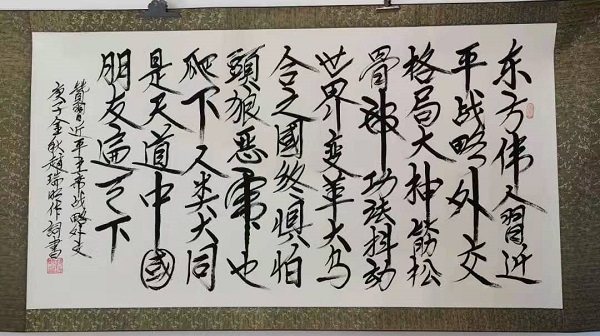 东方伟人習近
平战略外交
格局大抽筋松
骨功法抖动
世界变革大乌
合之國终惧怕
頭狼恶霸也
爬下人类大同
是天道中國
朋友遍天下
赞習近平主席战略外交
庚子金秋趙瑞作詞書